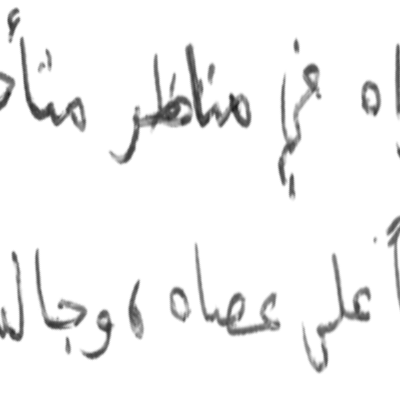 اه في مناظر متأ
أ على عصاه ، وجال